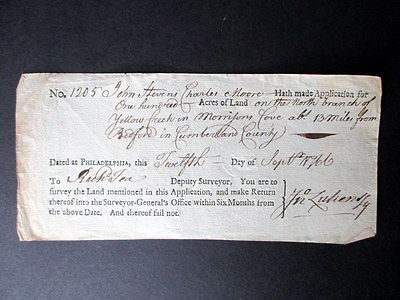 No. 1205 John Stevens Charles Moore Hath made Application for
One hundred Acres of Land on the North branch of
Yellow Creek in Morrisons Cove abt. 13 Miles from
Bedford in Cumberland County
Dated at PHILADELPHIA, this Twelfth Day of Septr. 1766
To Richd Tea Deputy Surveyor, You are to
survey the Land mentioned in this Application, and make Return
thereof into the Surveyor-General's Office within Six Months from
the above Date. And thereof fail not.
Jno. Lukens SG